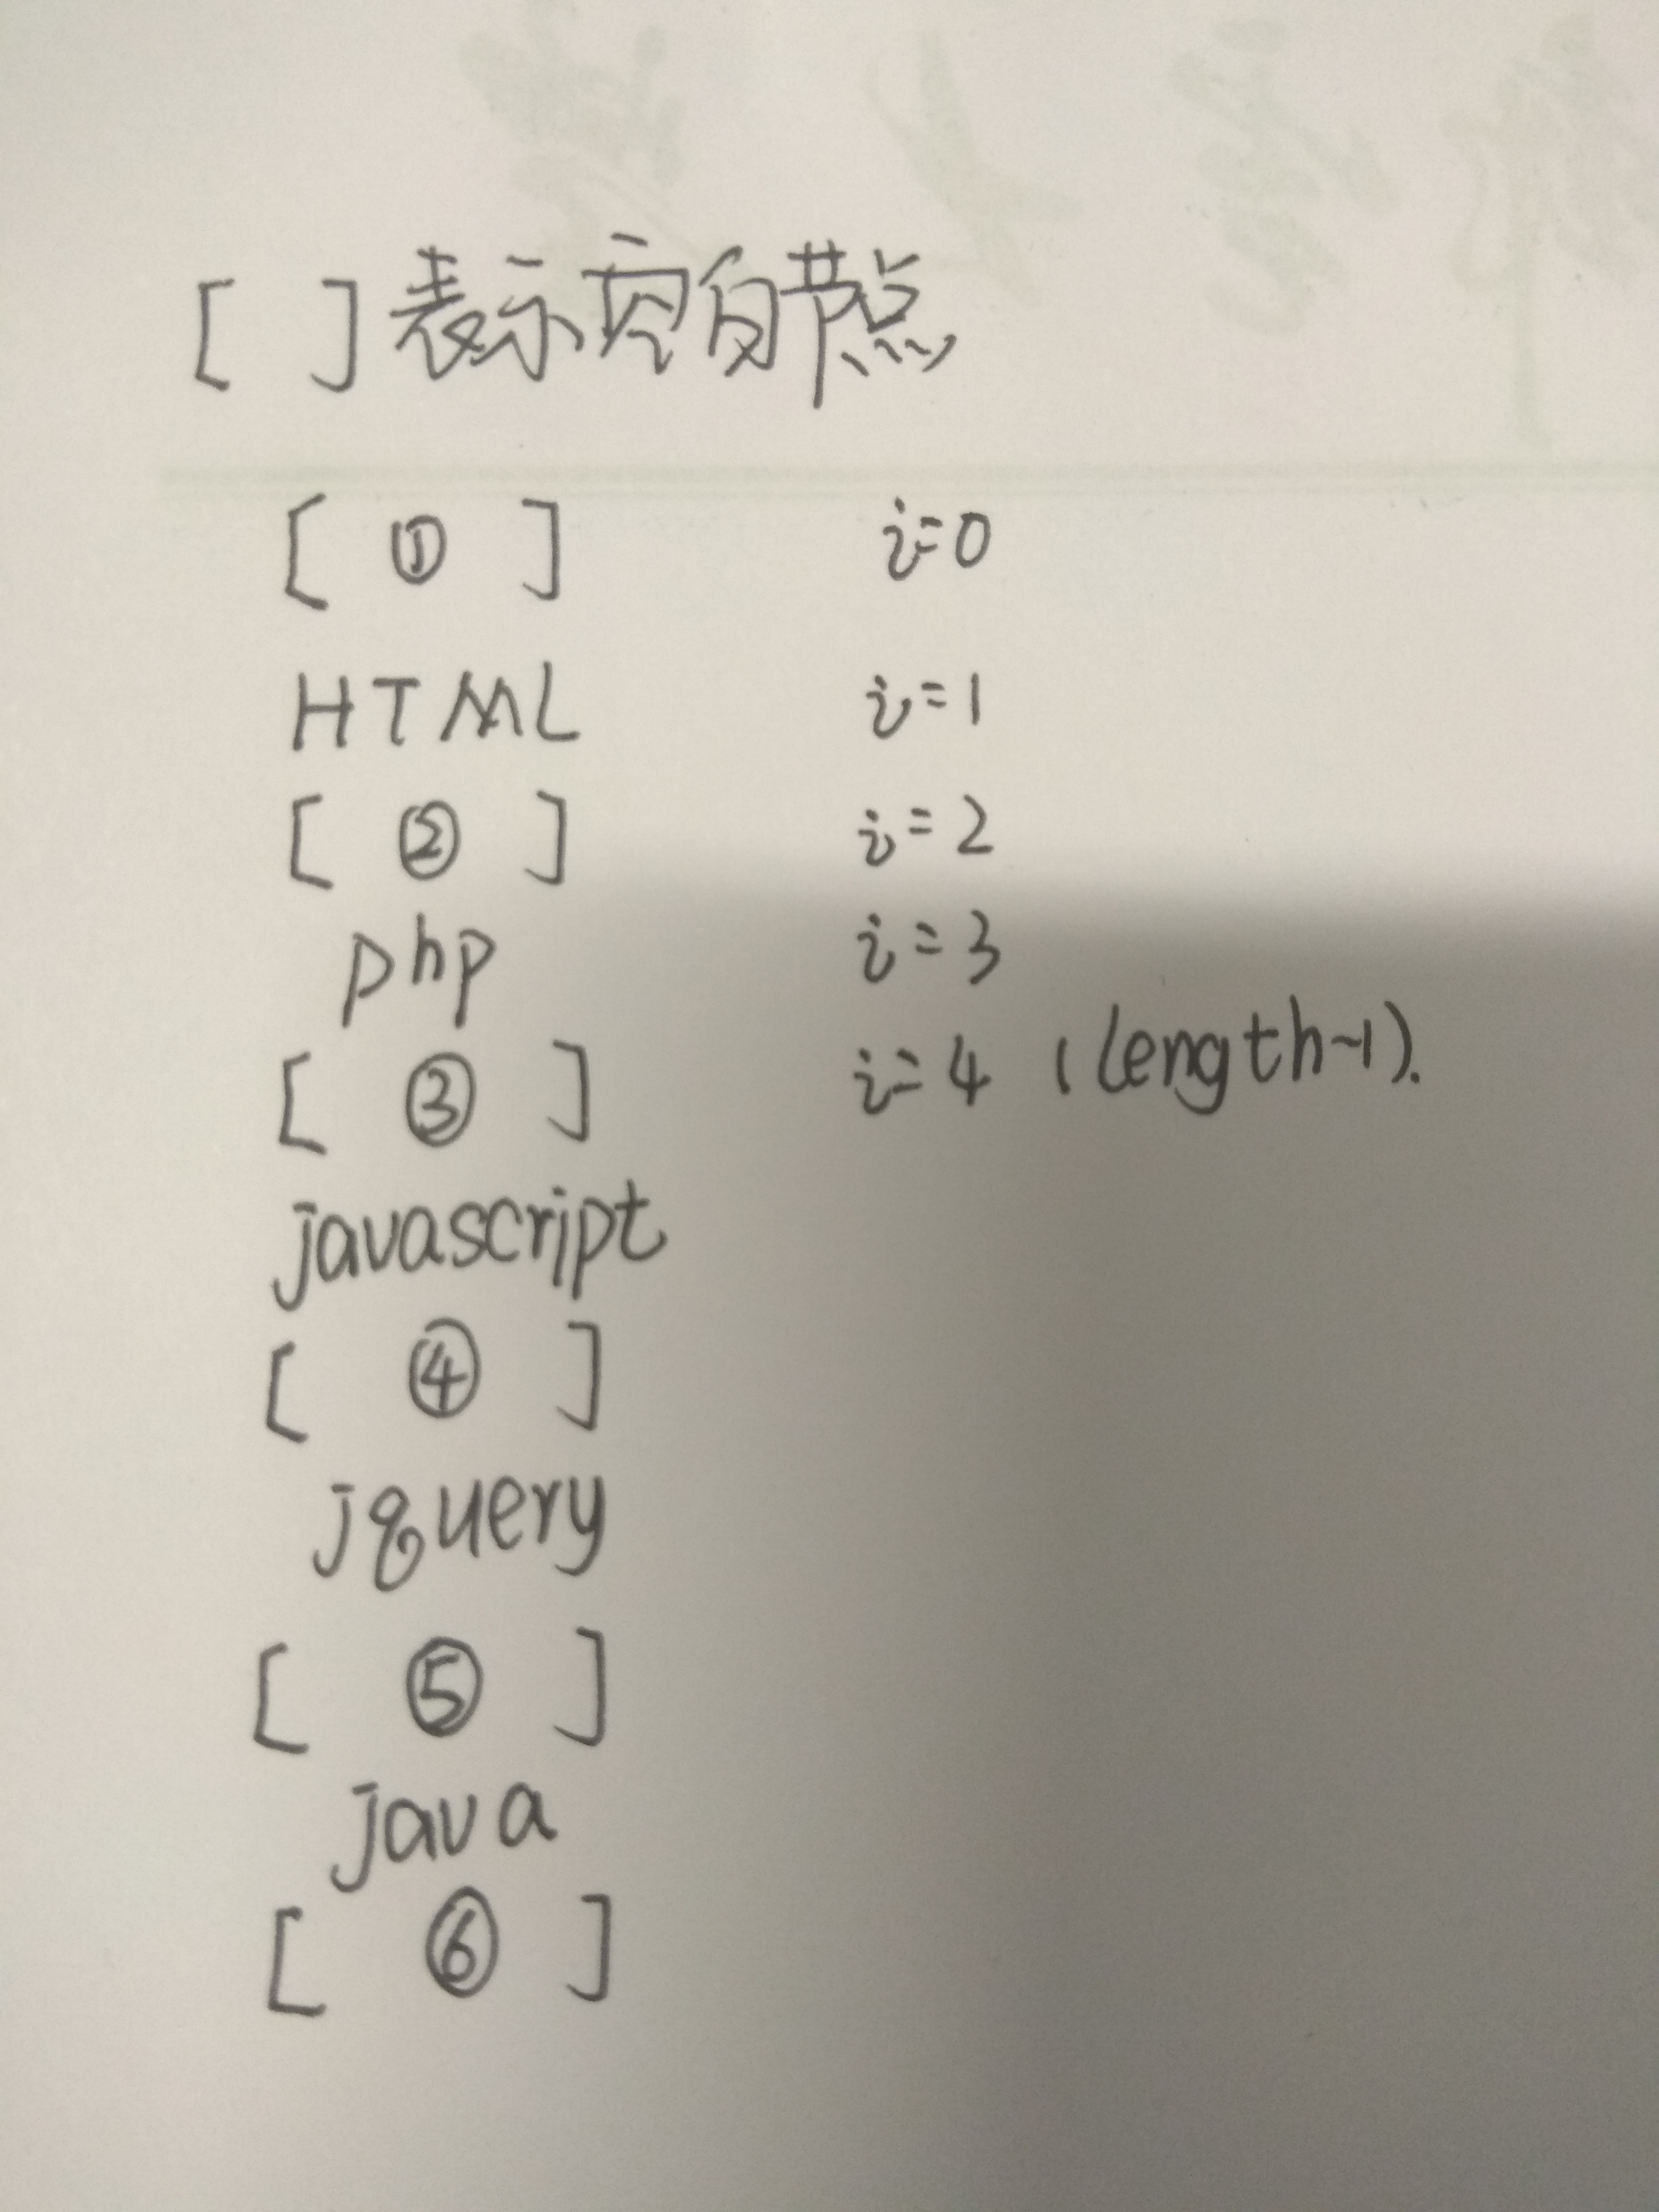 [ ]表示空白节点
[ ① ] i=0
HTML i=1
[ ② ] i=2
php i=3
[ ③ ] i=4 (length-1).
javascript
[ ④ ]
jquery
[ ⑤ ]
java
[ ⑥ ]